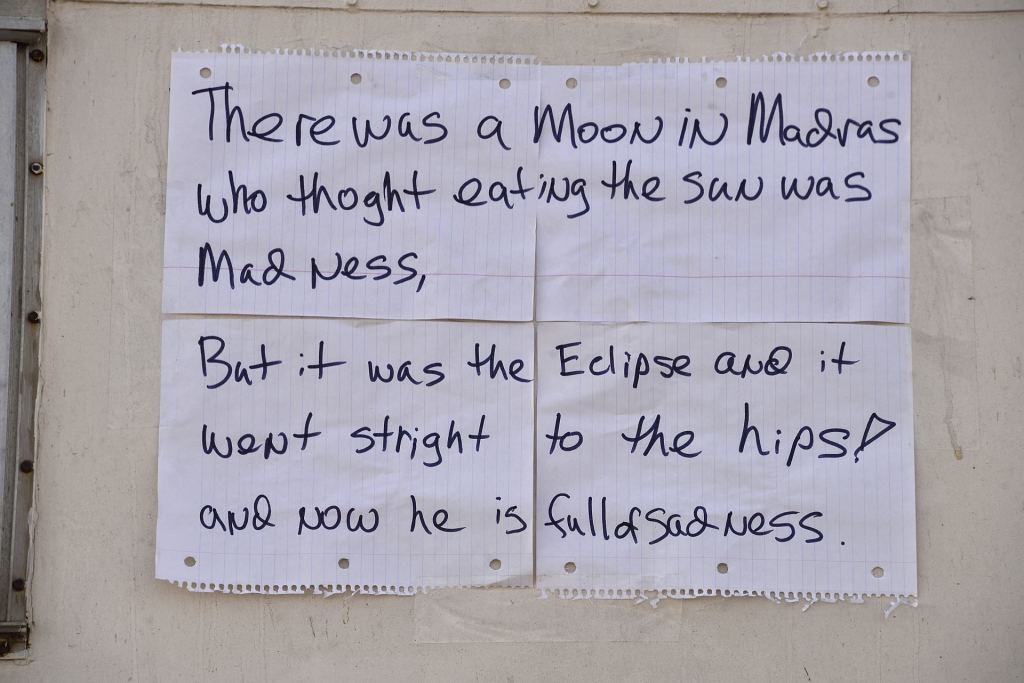 There was a Moon in Madras
who thoght eating the sun was
Madness,
But it was the Eclipse and it
went stright to the hips!
and now he is full of sadness.